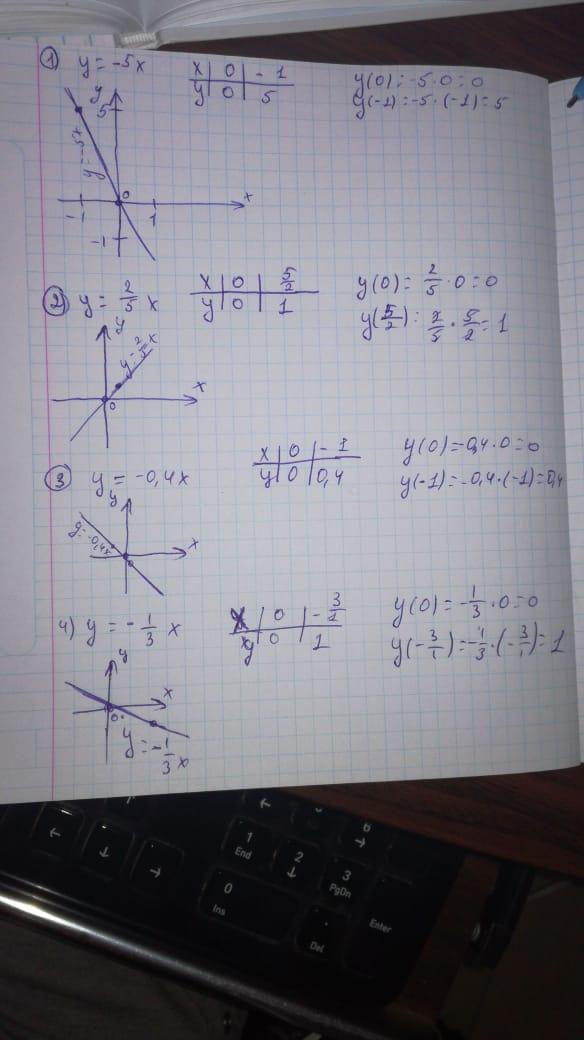 1 y = -5x
x | 0 | -1
y | 0 | 5
y(0) = -5·0 = 0
y(-1) = -5·(-1) = 5
y
5
y = -5x
0
x
-1
1
-1
2 y = 2/5 x
x | 0 | 5/2
y | 0 | 1
y(0) = 2/5 · 0 = 0
y(5/2) = 2/5 · 5/2 = 1
y
y = 2/5 x
x
0
3 y = -0,4x
x | 0 | -1
y | 0 | 0,4
y(0) = -0,4·0 = 0
y(-1) = -0,4·(-1) = 0,4
y
y = -0,4x
x
0
4) y = -1/3 x
x | 0 | -3/1
y | 0 | 1
y(0) = -1/3 · 0 = 0
y(-3/1) = -1/3 · (-3/1) = 1
y
x
0
y = -1/3 x
6
1
End
2
3
PgDn
0
Ins
Del
Enter